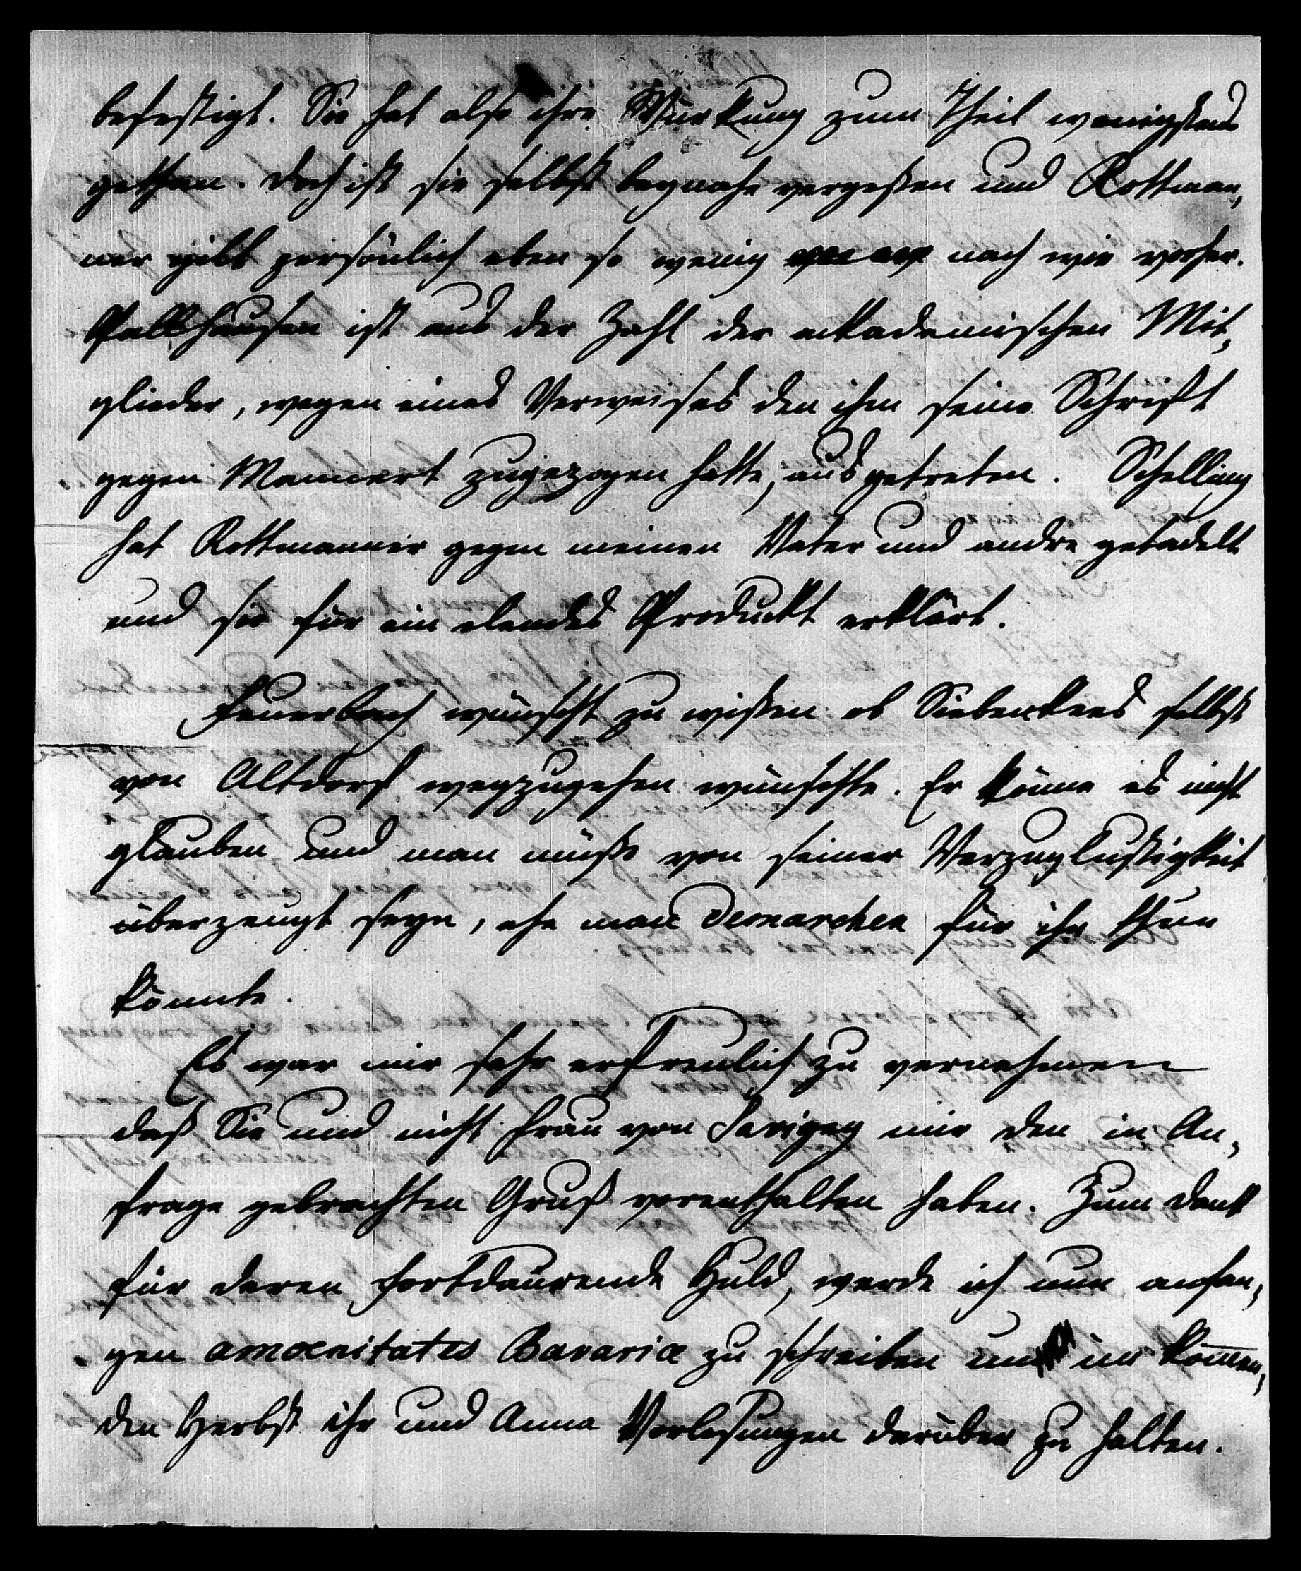 befestigt. Sie hat also ihre Würkung zum Theil wenigstens
gethan. Doch ist sie selbst beynahe vergeßen und Rottman,
ner gilt persönlich eben so wenig nach wie vorher.
Pallhausen ist aus der Zahl der akademischen Mit,
glieder, wegen eines Verweises den ihm seine Schrift
gegen Mannert zugezogen hatte, ausgetreten. Schelling
hat Rottmanner gegen meinen Vater und andre getadelt
und sie für ein elendes Produkt erklärt.
Feuerbach wünscht zu wißen ob Siebenkees selbst
von Altdorf wegzugehen wünschte. Er könne es nicht
glauben und man müße von seiner Verzuglustigkeit
überzeugt seyn, ehe man Demarchen für ihn thun
könnte.
Es war mir sehr erfreulich zu vernehmen
daß Sie und nicht Frau von Savigny mir den in An,
frage gebrachten Gruß vorenthalten haben. Zum Dank
für deren fortdaurende Huld, werde ich nun anfan,
gen amoenitates Bavariæ zu schreiben um im kom̅en,
den Herbst ihr und Anna Vorlesungen darüber zu halten.